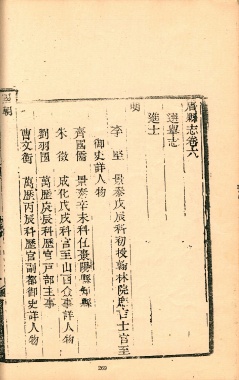 唐縣志卷六
選舉志
進士
明
李 景泰戊辰科初授翰林院庶吉士官至
御史詳人物
齊國儒 景泰辛未科任棗陽縣知縣
朱徵 成化戊戌科官至山西僉事詳人物
劉羽國 萬歷庚辰科歷官戶部主事
曹文衡 萬歷丙辰科歷官副都御史詳人物
269